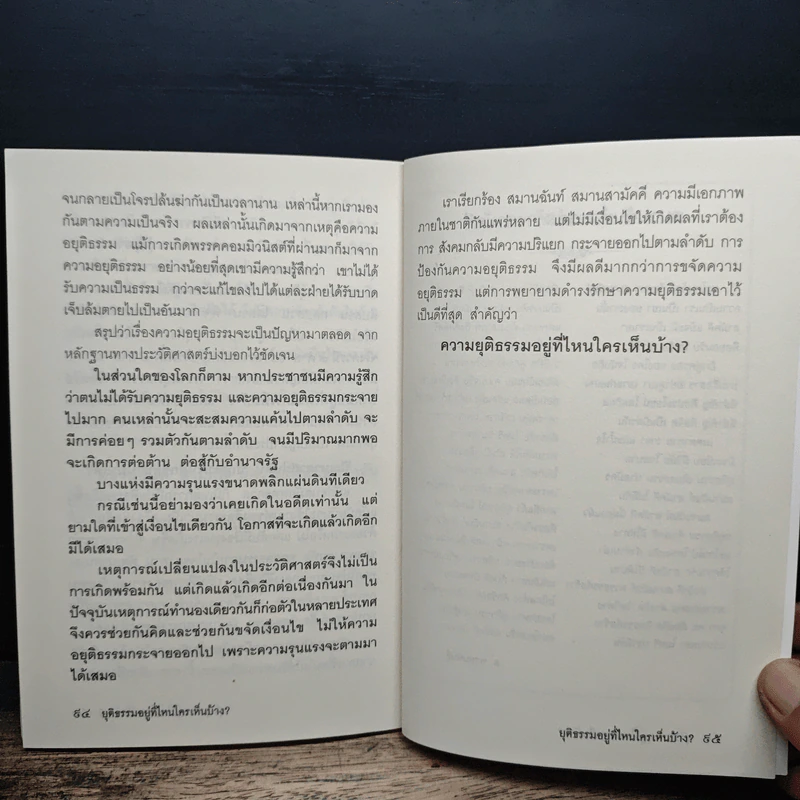 จนกลายเป็นโจรปล้นฆ่ากันเป็นเวลานาน เหล่านี้หากเรามอง
กันตามความเป็นจริง ผลเหล่านั้นเกิดมาจากเหตุคือความ
อยุติธรรม แม้การเกิดพรรคคอมมิวนิสต์ที่ผ่านมาก็มาจาก
ความอยุติธรรม อย่างน้อยที่สุดเขามีความรู้สึกว่า เขาไม่ได้
รับความเป็นธรรม กว่าจะแก้ไขลงไปได้แต่ละฝ่ายได้รับบาด
เจ็บล้มตายไปเป็นอันมาก
สรุปว่าเรื่องความอยุติธรรมจะเป็นปัญหามาตลอด จาก
หลักฐานทางประวัติศาสตร์บ่งบอกไว้ชัดเจน
ในส่วนใดของโลกก็ตาม หากประชาชนมีความรู้สึก
ว่าตนไม่ได้รับความยุติธรรม และความอยุติธรรมกระจาย
ไปมาก คนเหล่านั้นจะสะสมความแค้นไปตามลำดับ จะ
มีการค่อยๆ รวมตัวกันตามลำดับ จนมีปริมาณมากพอ
จะเกิดการต่อต้าน ต่อสู้กับอำนาจรัฐ
บางแห่งมีความรุนแรงขนาดพลิกแผ่นดินทีเดียว
กรณีเช่นนี้อย่ามองว่าเคยเกิดในอดีตเท่านั้น แต่
ยามใดที่เข้าสู่เงื่อนไขเดียวกัน โอกาสที่จะเกิดแล้วเกิดอีก
มีได้เสมอ
เหตุการณ์เปลี่ยนแปลงในประวัติศาสตร์จึงไม่เป็น
การเกิดพร้อมกัน แต่เกิดแล้วเกิดอีกต่อเนื่องกันมา ใน
ปัจจุบันเหตุการณ์ทำนองเดียวกันก็ก่อตัวในหลายประเทศ
จึงควรช่วยกันคิดและช่วยกันขจัดเงื่อนไข ไม่ให้ความ
อยุติธรรมกระจายออกไป เพราะความรุนแรงจะตามมา
ได้เสมอ
๙๔ ยุติธรรมอยู่ที่ไหนใครเห็นบ้าง?
เราเรียกร้อง สมานฉันท์ สมานสามัคคี ความมีเอกภาพ
ภายในชาติกันแพร่หลาย แต่ไม่มีเงื่อนไขให้เกิดผลที่เราต้อง
การ สังคมกลับมีความปริแยก กระจายออกไปตามลำดับ การ
ป้องกันความอยุติธรรม จึงมีผลดีมากกว่าการขจัดความ
อยุติธรรม แต่การพยายามดำรงรักษาความยุติธรรมเอาไว้
เป็นดีที่สุด สำคัญว่า
ความยุติธรรมอยู่ที่ไหนใครเห็นบ้าง?
ยุติธรรมอยู่ที่ไหนใครเห็นบ้าง? ๙๕